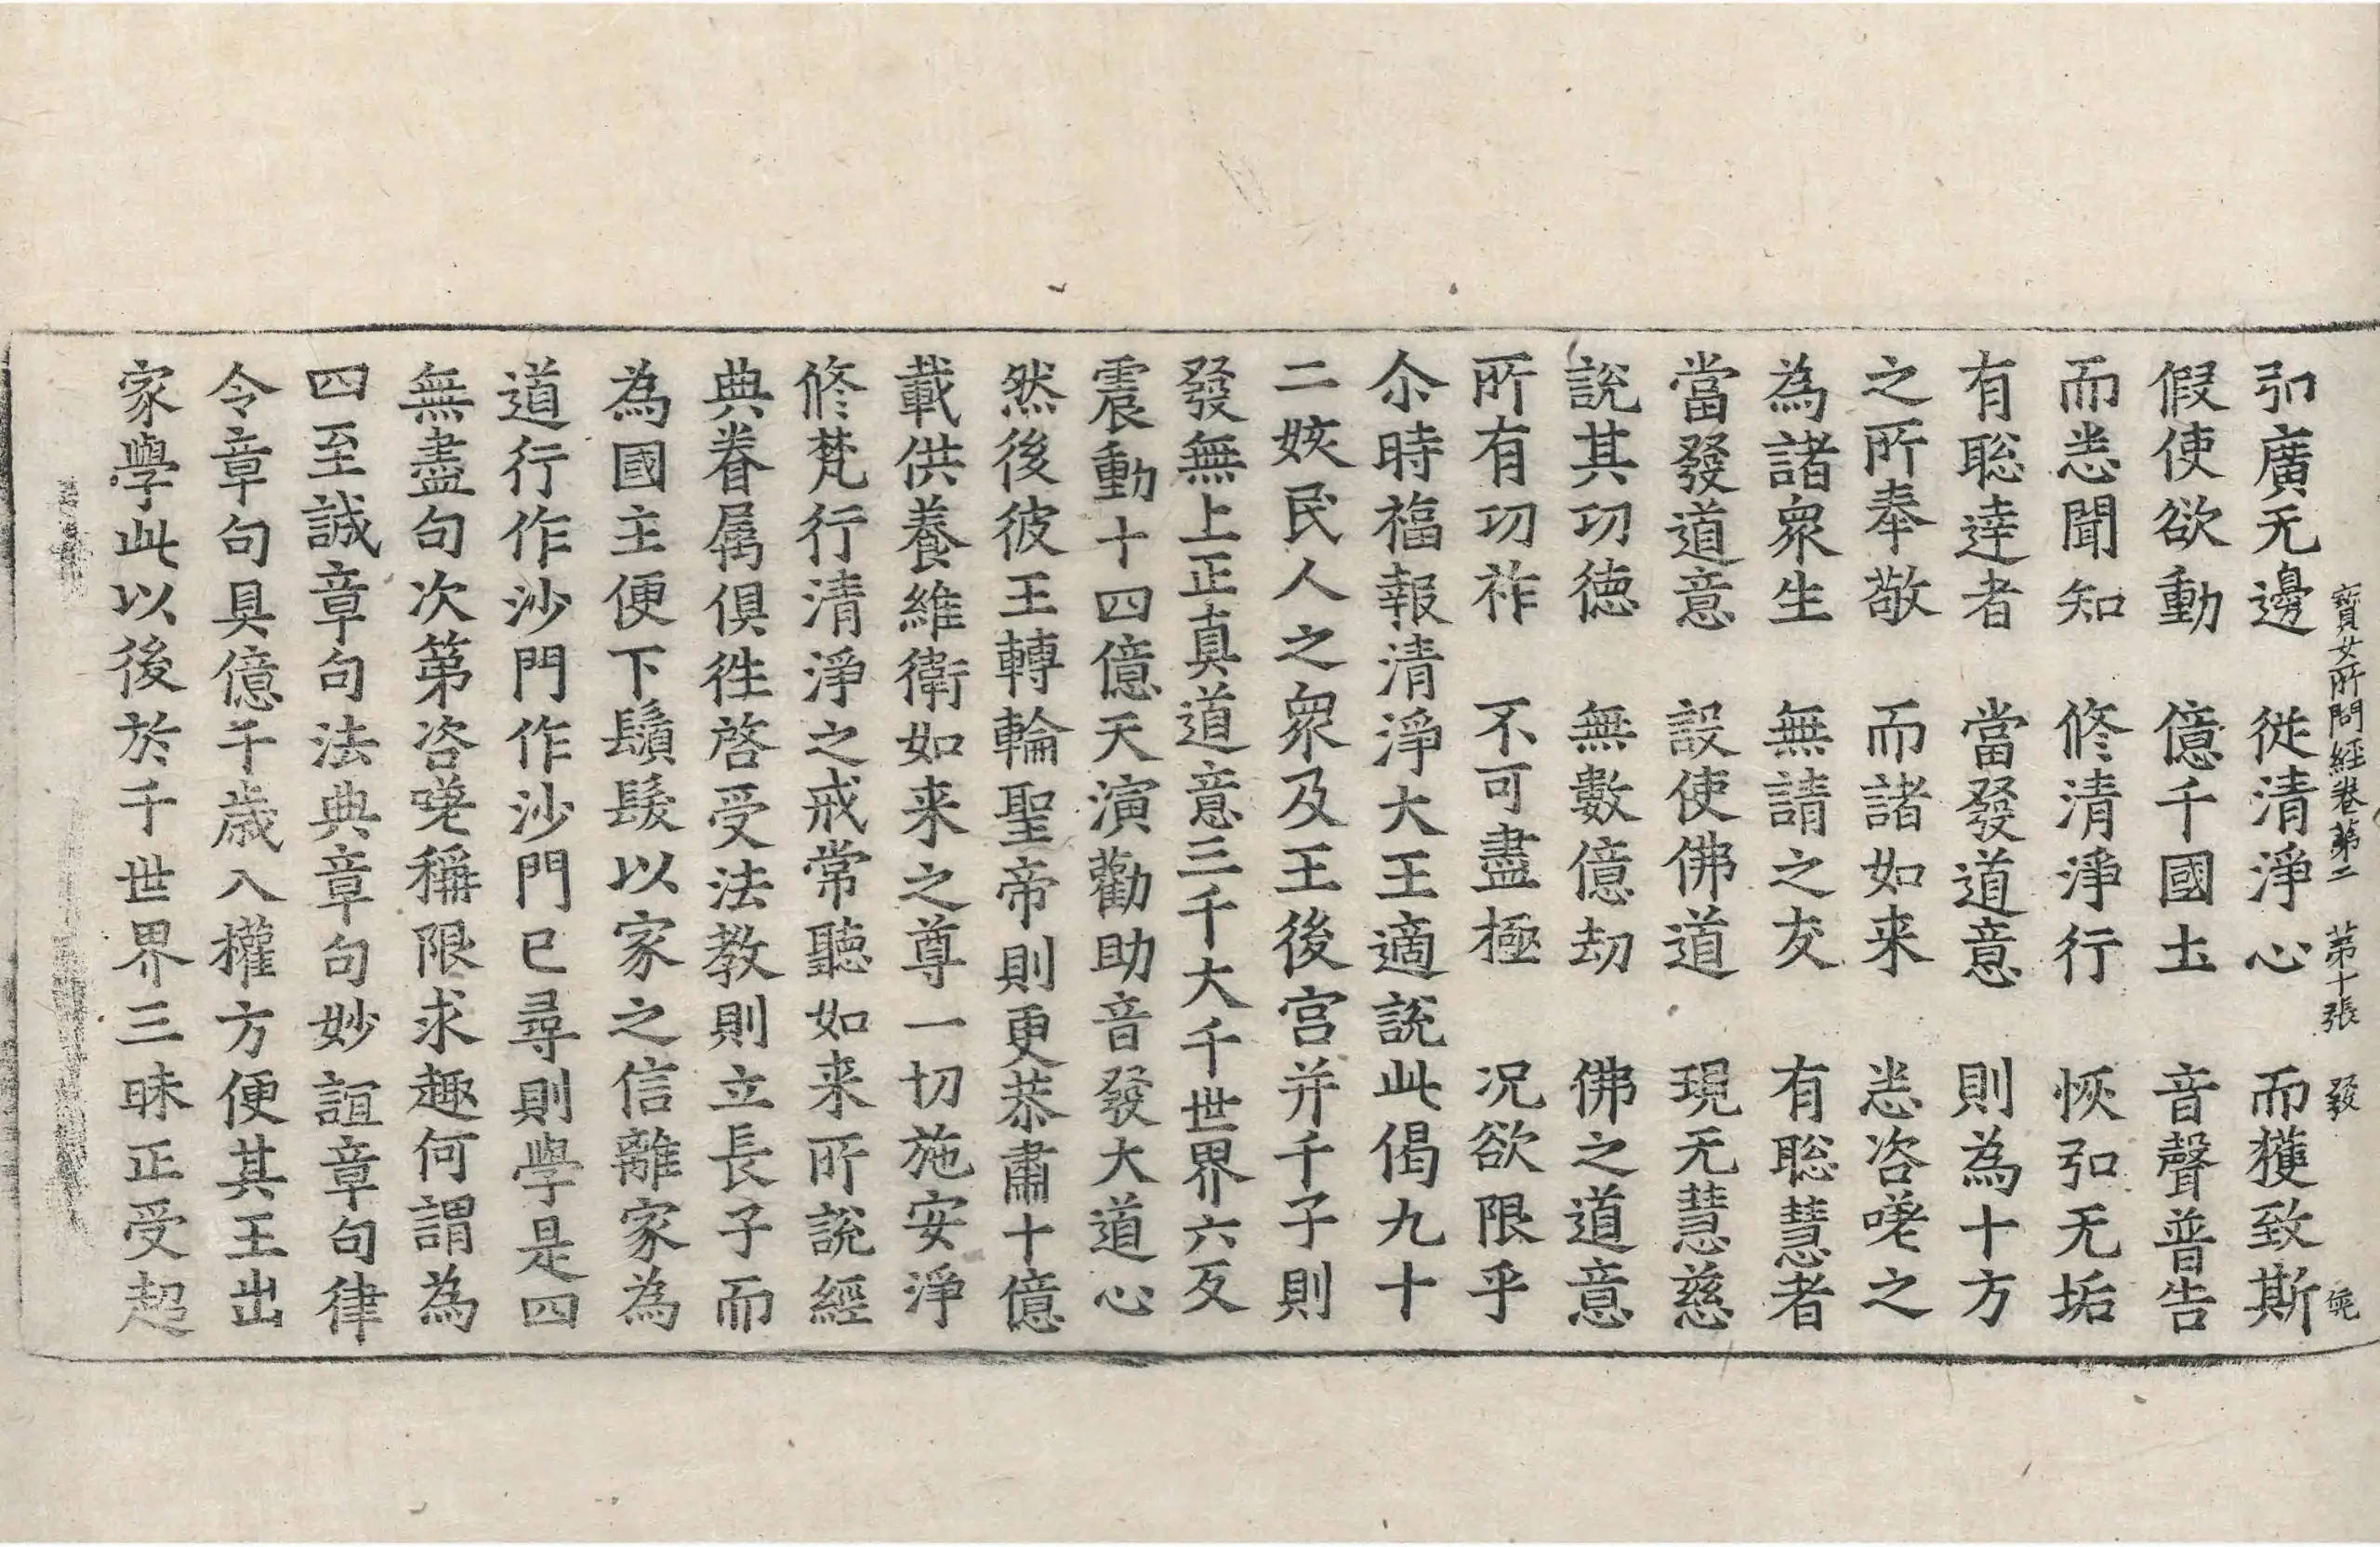 寶女所問經卷第二　第十張　發
弘廣无邊　從清淨心　而獲致斯
假使欲動　億千國土　音聲普告
而悉聞知　修清淨行　恢弘无垢
有聡達者　當發道意　則為十方
之所奉敬　而諸如来　悉咨嗟之
為諸衆生　無請之友　有聡慧者
當發道意　設使佛道　現无慧慈
說其功德　無數億劫　佛之道意
所有功祚　不可盡極　况欲限乎
尒時福報清淨大王適說此偈九十
二姟民人之衆及王後宮并千子則
發無上正真道意三千大千世界六反
震動十四億天演勸助音發大道心
然後彼王轉輪聖帝則更恭肅十億
載供養維衛如来之尊一切施安淨
修梵行清淨之戒常聽如来所說經
典眷属俱徃啓受法教則立長子而
為國主便下鬚髮以家之信離家為
道行作沙門作沙門已尋則學是四
無盡句次第咨嗟稱限求趣何謂為
四至誠章句法典章句妙誼章句律
令章句具億千歳入權方便其王出
家學此以後於千世界三昧正受超